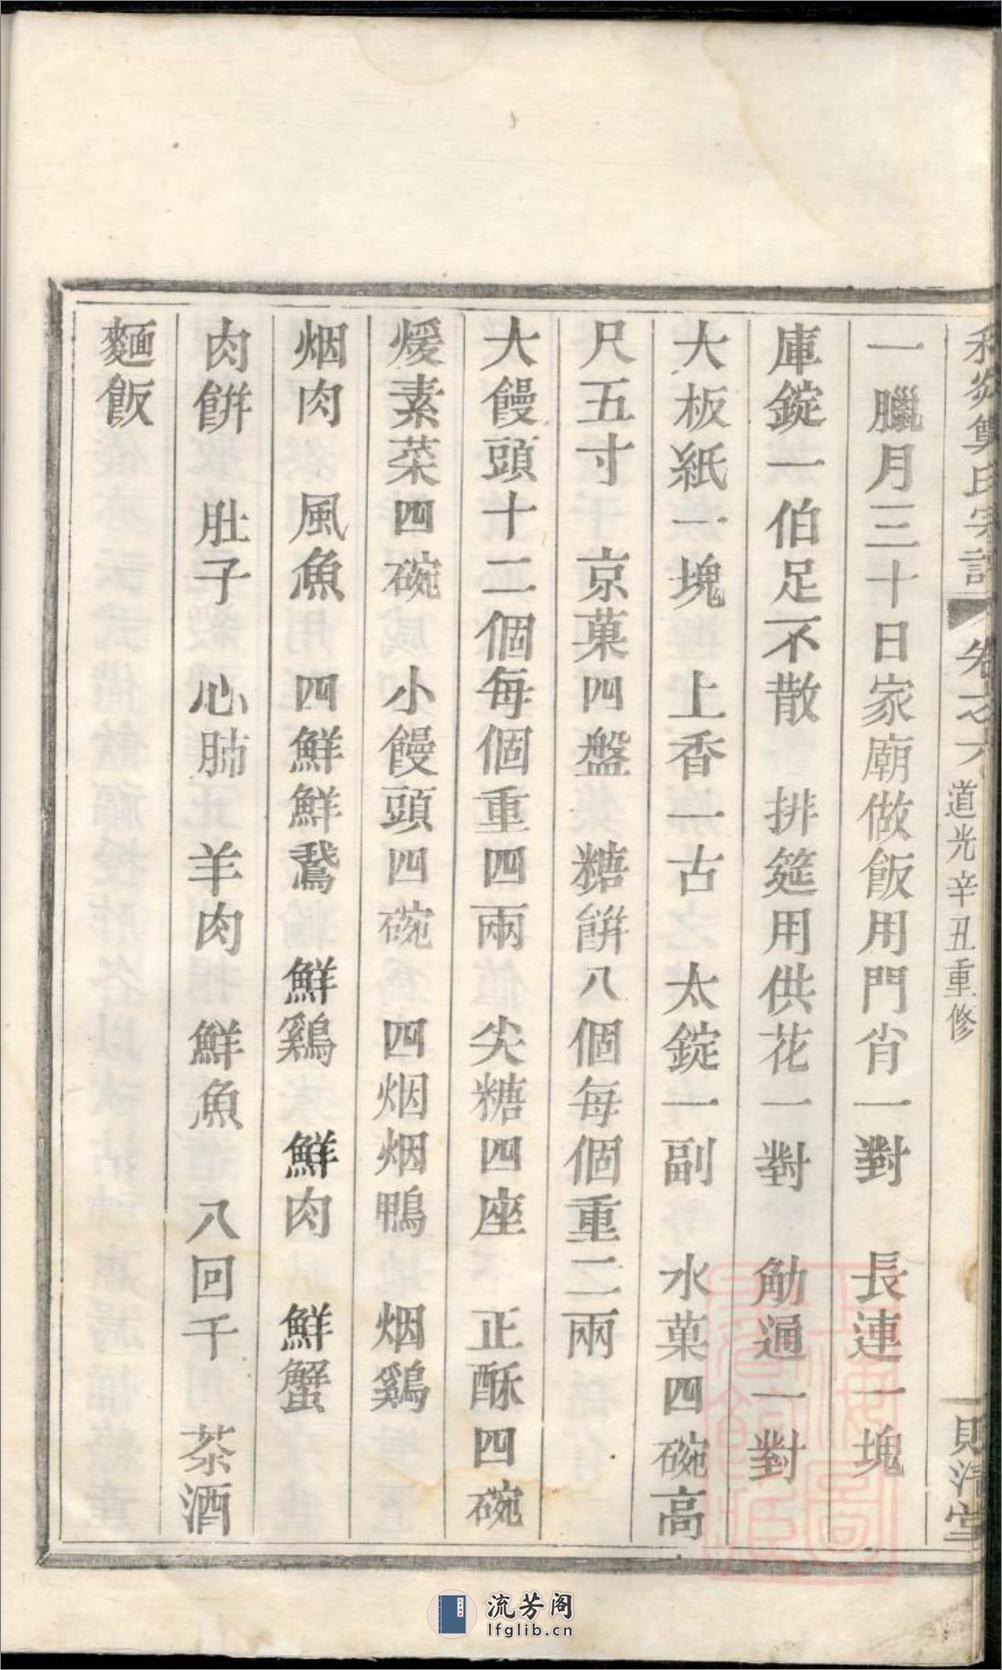 吳氏宗譜 卷之六 道光辛丑重修 一 則清堂
一臘月三十日家廟做飯用門肖一對 長連一塊
庫錠一伯足不散 排筵用供花一對 觔通一對
大板紙一塊 上香一古 太錠一副 水菓四碗高
尺五寸 京菓四盤 糖餅八個每個重二兩
大饅頭十二個每個重四兩 尖糖四座 正酥四碗
煖素菜四碗 小饅頭四碗 四烟烟鴨 烟鷄
烟肉 風魚 四鮮鮮鵞 鮮鷄 鮮肉 鮮蟹
肉餅 肚子 心肺 羊肉 鮮魚 八回千 茶酒
麵飯
流芳阁
lfglib.cn